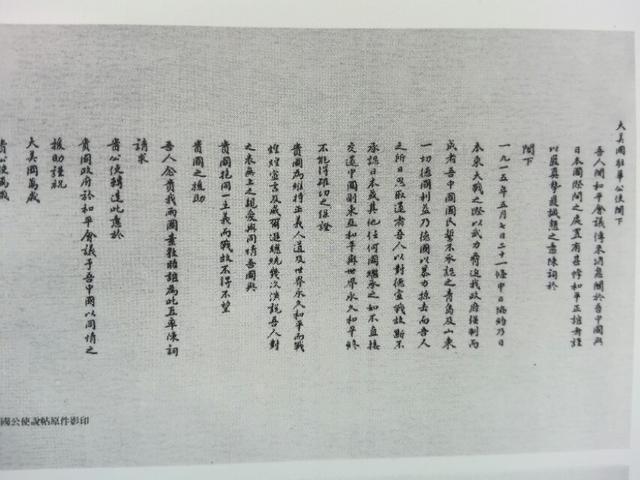 大美國駐華公使閣下
吾人聞和平會議傳來消息關於吾中國與
日本國際間之處置有甚悖和平正誼者謹
以最真摯最誠懇之意陳詞於
閣下
一九一五年五月七日二十一條中日協約乃日
本乘大戰之際以武力脅迫我政府強制而
成者吾中國國民誓不承認之青島及山東
一切德國利益乃德國以暴力掠去而吾人
之所日思取還者吾人以對德宣戰故斷不
承認日本或其他任何國繼承之如不直接
交還中國則東亞和平與世界永久和平終
不能得確切之保證
貴國為維持正義人道及世界永久和平而戰
煌煌宣言及威爾遜總統幾次演說吾人對
之表無上之親愛與同情吾國與
貴國抱同一主義而戰故不得不望
貴國之援助
吾人念貴我兩國素敦睦誼為此直率陳詞
請求
貴公使轉達此意於
貴國政府於和平會議予吾中國以同情之
援助謹祝
大美國萬歲
貴公使萬歲
國公使說帖原件影印